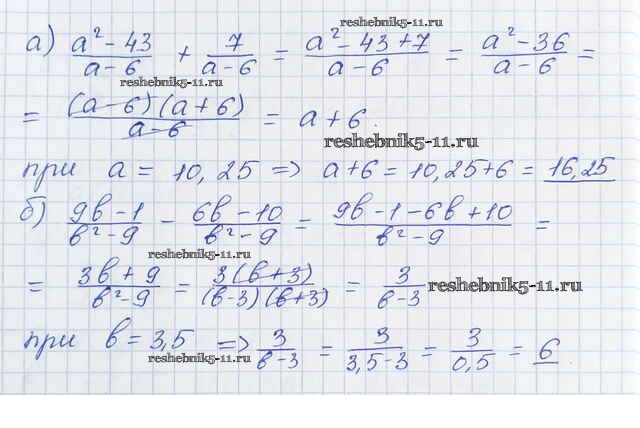 reshebnik5-11.ru
а) (a² - 43)/(a - 6) + 7/(a - 6) = (a² - 43 + 7)/(a - 6) = (a² - 36)/(a - 6) =
reshebnik5-11.ru
= (a - 6)(a + 6)/(a - 6) = a + 6.
reshebnik5-11.ru
при a = 10,25 => a + 6 = 10,25 + 6 = 16,25
б) (9b - 1)/(b² - 9) - (6b - 10)/(b² - 9) = (9b - 1 - 6b + 10)/(b² - 9) =
reshebnik5-11.ru
= (3b + 9)/(b² - 9) = 3(b + 3)/(b - 3)(b + 3) = 3/(b - 3)
reshebnik5-11.ru
при b = 3,5 => 3/(b - 3) = 3/(3,5 - 3) = 3/0,5 = 6.
reshebnik5-11.ru